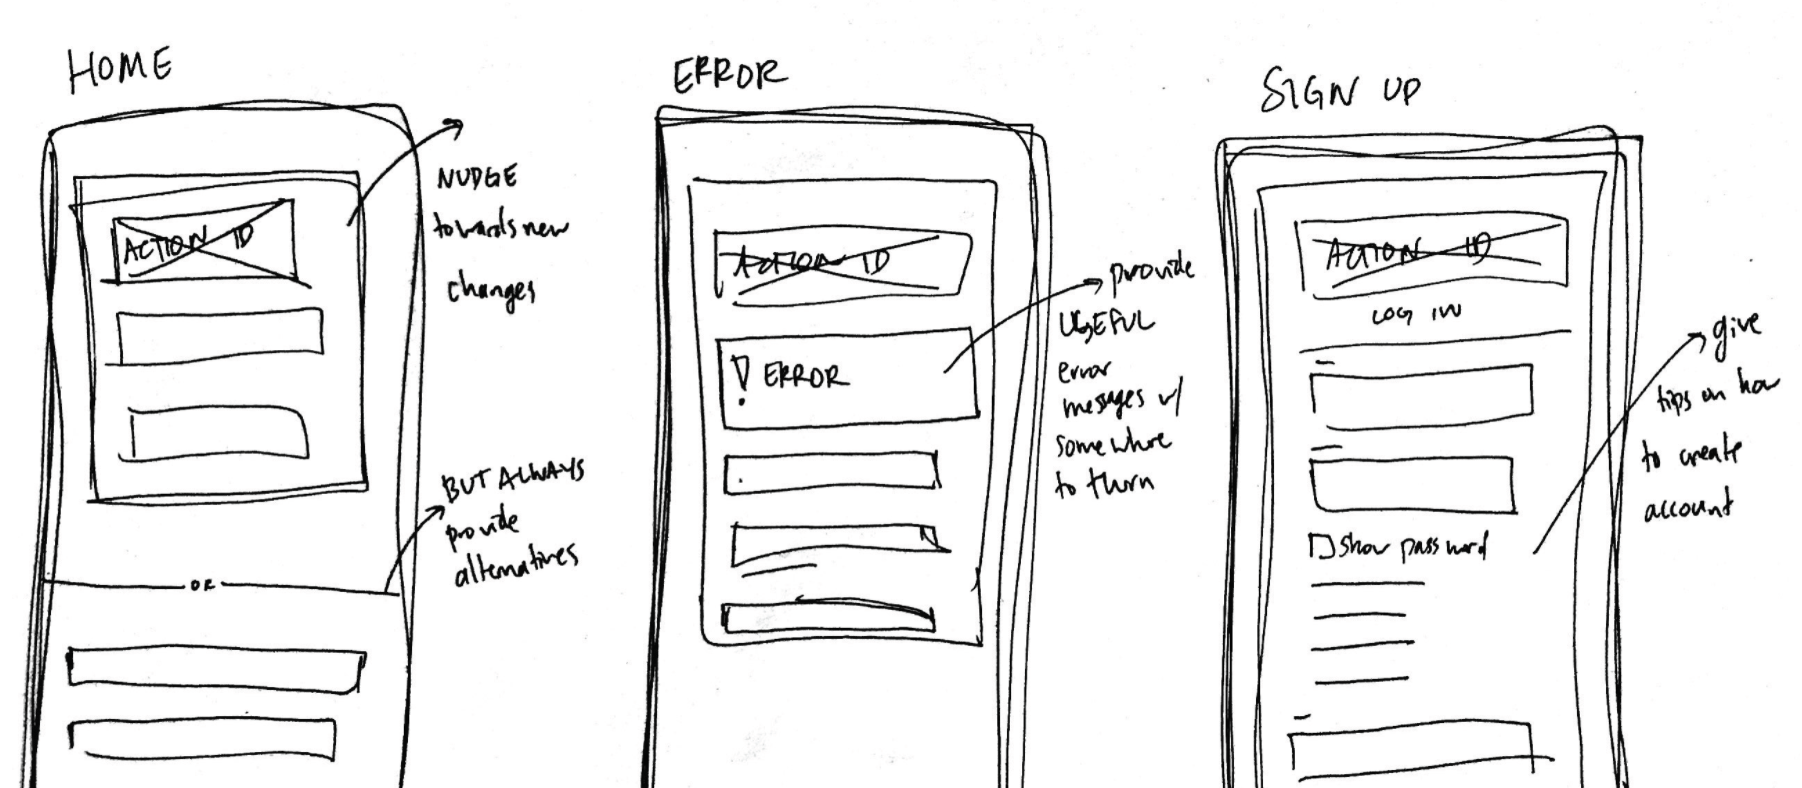 HOME
ACTION ID
NUDGE
towards new
changes
BUT ALWAYS
provide
alternatives
OR
ERROR
ACTION ID
! ERROR
provide
USEFUL
error
messages w/
somewhere
to thurn
SIGN UP
ACTION ID
LOG IN
show password
give
tips on how
to create
account